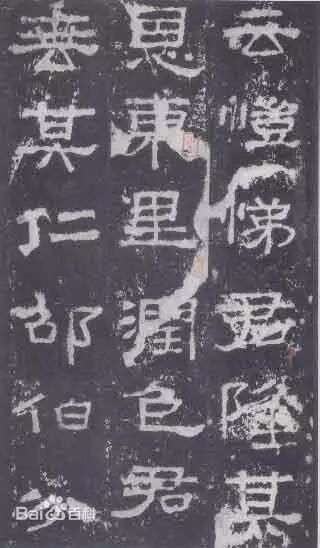 云愷悌君隆其
恩東里潤色君
垂其仁邵伯分
Bai百科